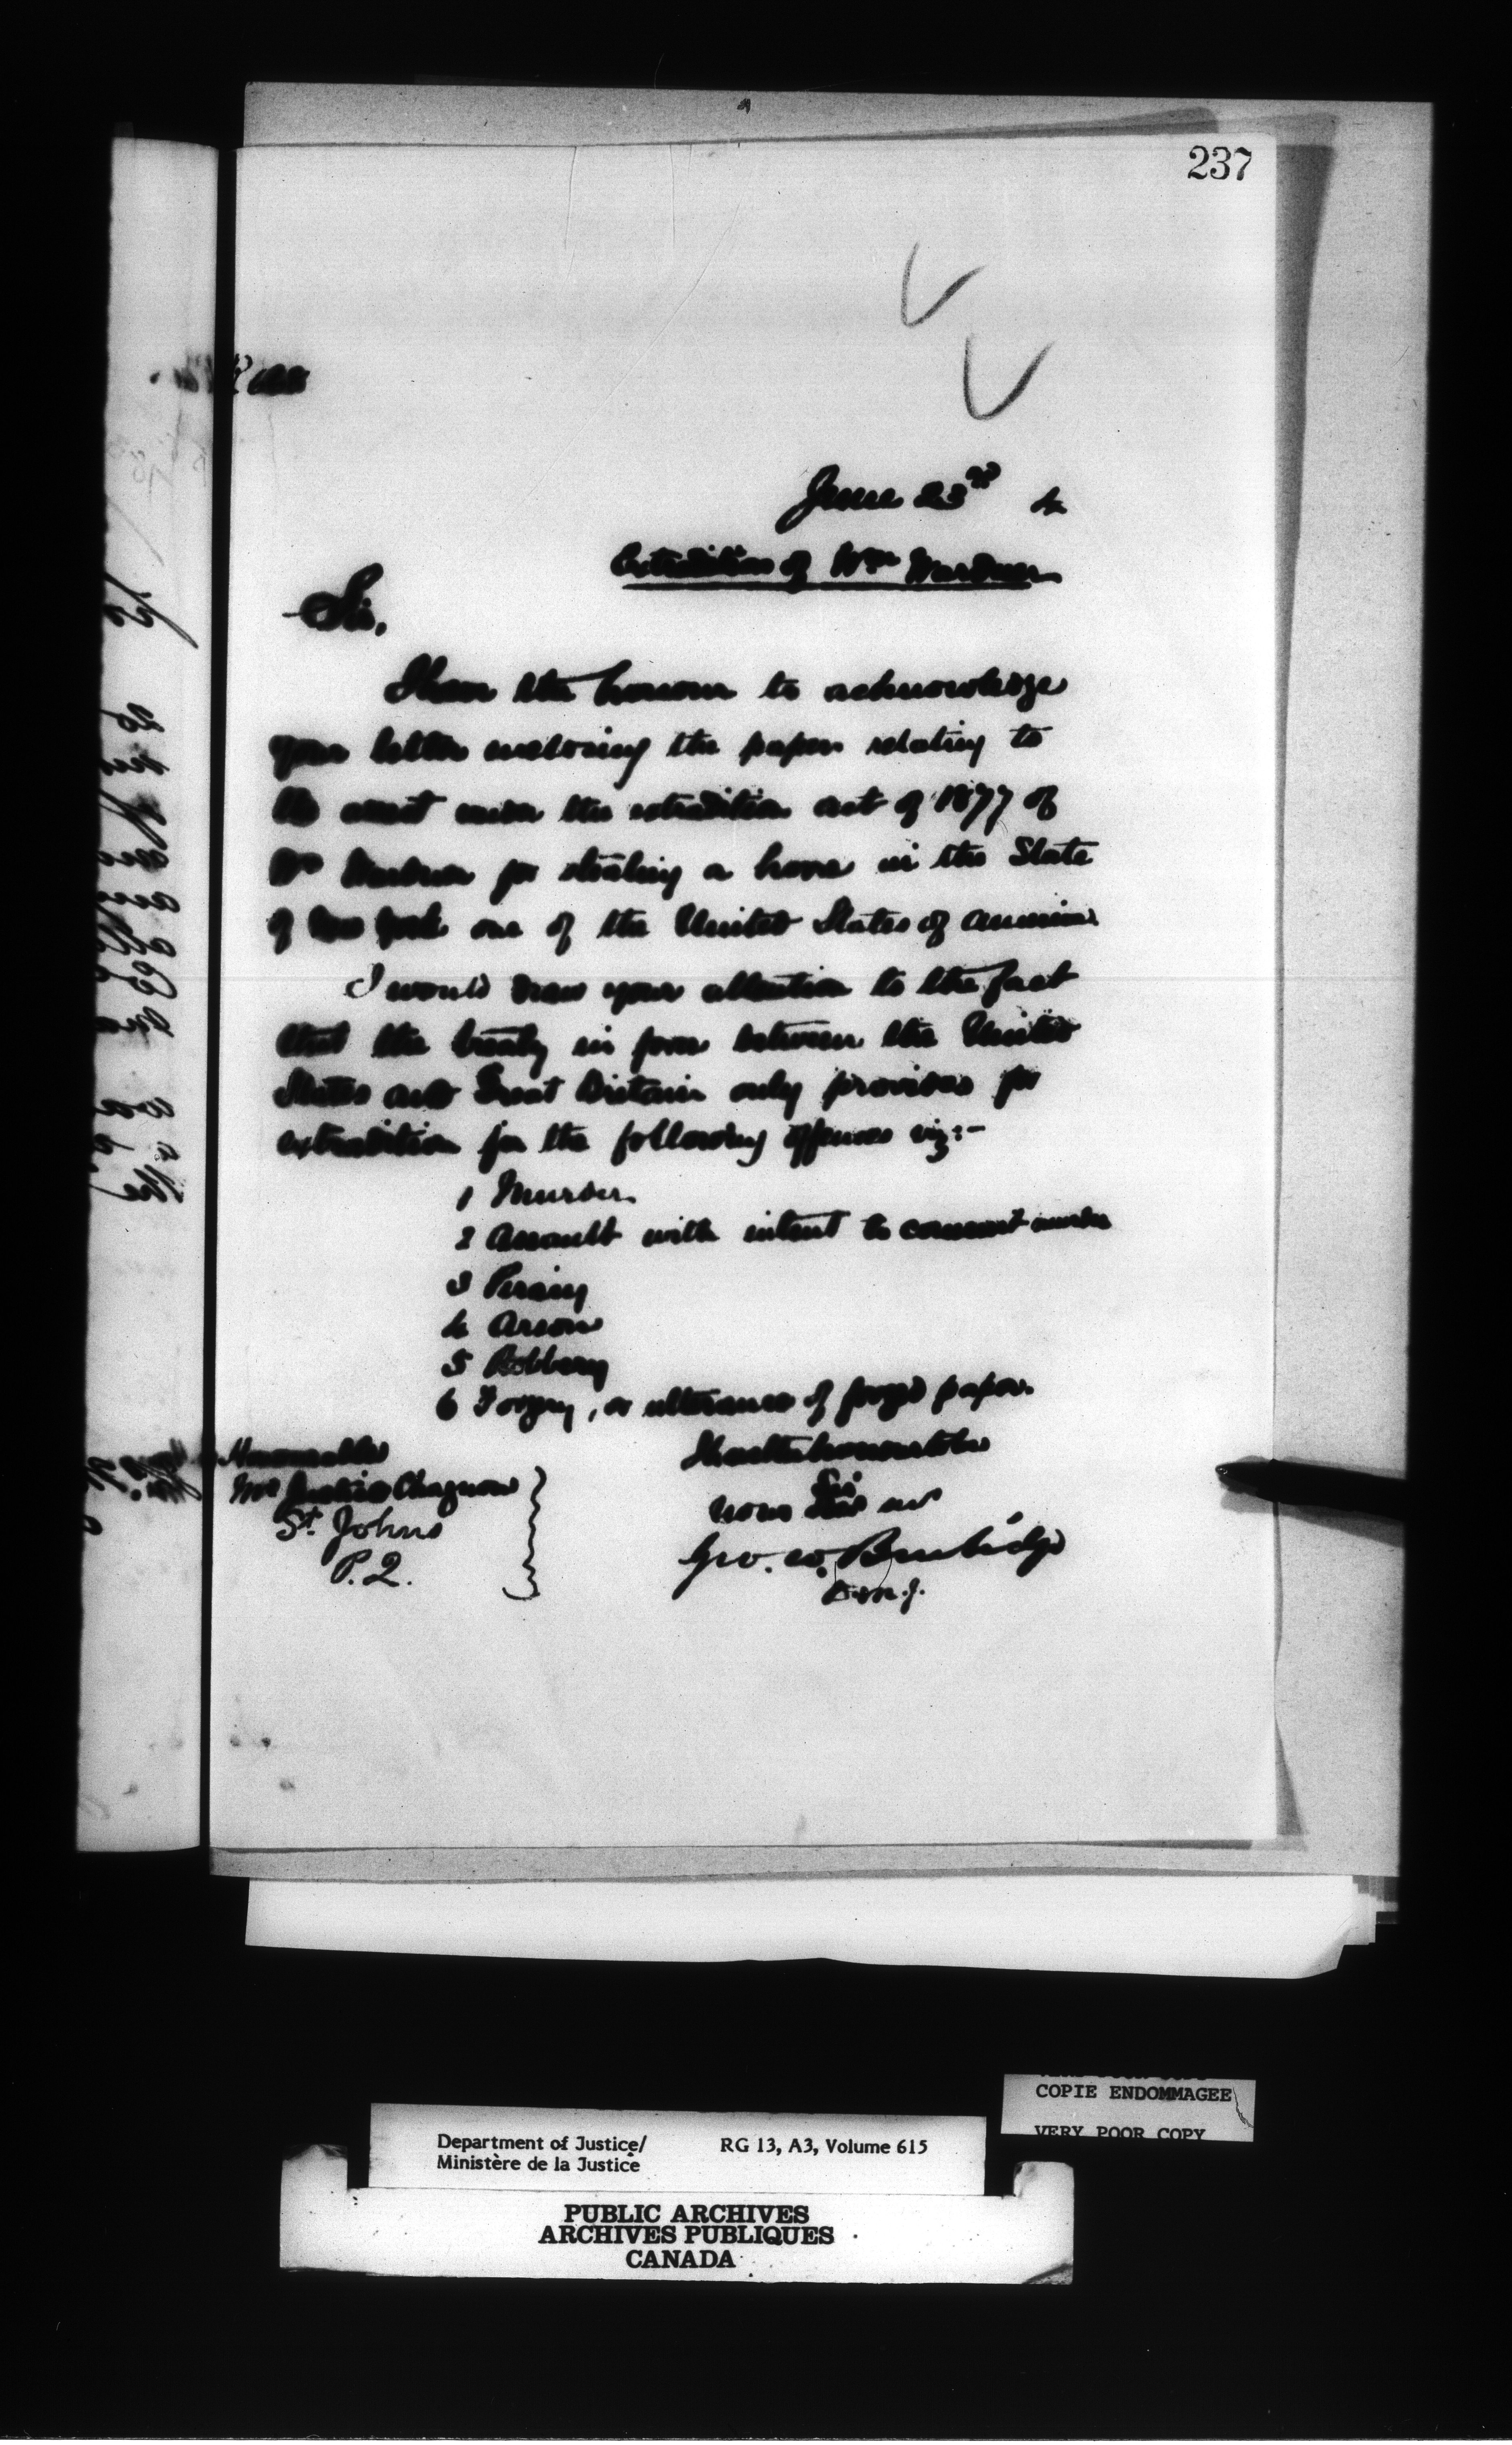 237
June 23rd 4
Extradition of Wm
Sir,
I have the honour to acknowledge
your letter enclosing the papers relating to
the arrest under the extradition act of 1877 of
Wm for stealing a horse in the State
of New York one of the United States of America
I would draw your attention to the fact
that the treaty in force between the United
States and Great Britain only provides for
extradition for the following offences viz:-
1 Murder
2 Assault with intent to commit murder
3 Piracy
4 Arson
5 Robbery
6 Forgery, or utterance of forged paper.
I have the honour to be
Sir
Your
Geo. W. Burbidge
D.M.J.
Honourable
Mr Justice Chagnon
St. Johns
P.Q.
COPIE ENDOMMAGEE
VERY POOR COPY
Department of Justice/ RG 13, A3, Volume 615
Ministère de la Justice
PUBLIC ARCHIVES
ARCHIVES PUBLIQUES
CANADA